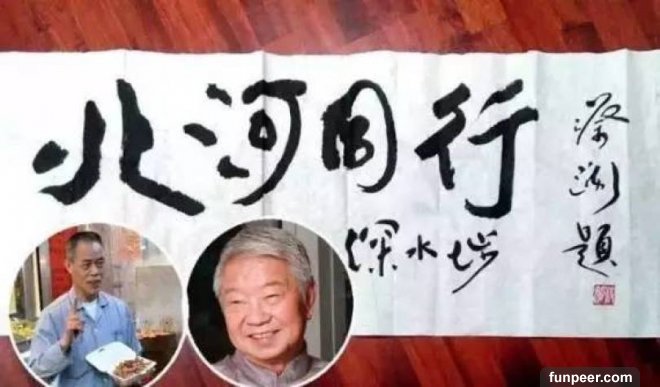 北河同行
深水埗
蔡瀾題
funpeer.com